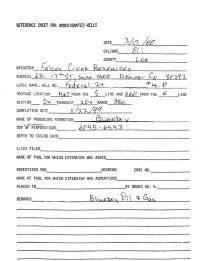 REFERENCE SHEET FOR UNDESIGNATED WELLS
DATE 3/7/00
OIL/GAS Oil
COUNTY Lea
OPERATOR Falcon Creek Resources
ADDRESS 621 17th ST, Suite 1800 Denver Co 80293
LEASE NAME, WELL NO. Federal 24 #4-P
FOOTAGE LOCATION 467 FROM THE S LINE AND 660 FROM THE E LINE
SECTION 24 TOWNSHIP 20S RANGE 38E
COMPLETION DATE 11/22/99
NAME OF PRODUCING FORMATION Blinebry
TOP OF PERFORATIONS 6045-6443
DEPTH TO CASING SHOE
C-123 FILED
NAME OF POOL FOR WHICH EXTENSION WAS ASKED
ADVERTISED FOR HEARING CASE NO.
NAME OF POOL FOR WHICH EXTENSION WAS ADVERTISED
PLACED IN BY ORDER NO.
REMARKS Blinebry Oil & Gas